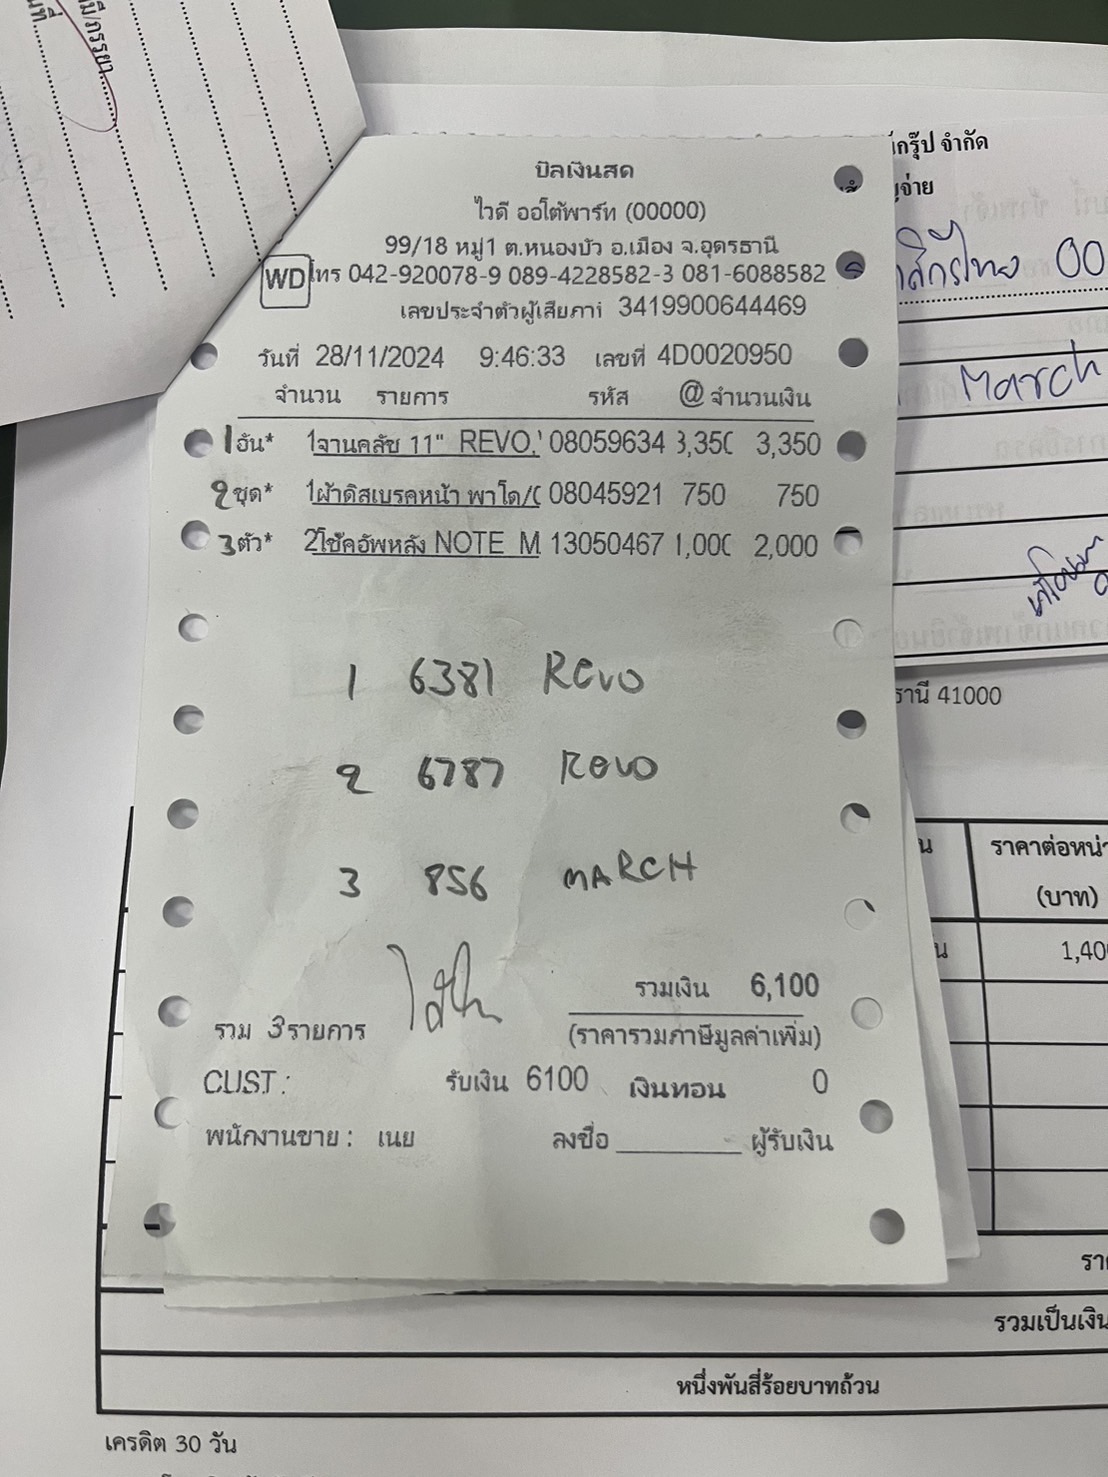 มี/ภรรยา
บิลเงินสด
ไวดี ออโต้พาร์ท (00000)
99/18 หมู่1 ต.หนองบัว อ.เมือง จ.อุดรธานี
WD โทร 042-920078-9 089-4228582-3 081-6088582
เลขประจำตัวผู้เสียภาษี 3419900644469
วันที่ 28/11/2024 9:46:33 เลขที่ 4D0020950
จำนวน รายการ รหัส @ จำนวนเงิน
1 อัน* 1จานคลัช 11" REVO,' 08059634 3,350 3,350
2 ชุด* 1ผ้าดิสเบรคหน้า พาโด/( 08045921 750 750
3 ตัว* 2โช้คอัพหลัง NOTE M 13050467 1,000 2,000
1 6381 REVO
2 6787 REVO
3 856 MARCH
รวมเงิน 6,100
รวม 3รายการ (ราคารวมภาษีมูลค่าเพิ่ม)
CUST: รับเงิน 6100 เงินทอน 0
พนักงานขาย : เนย ลงชื่อ ผู้รับเงิน
กรุ๊ป จำกัด
จ่าย
กสิกรไทย 00
March
ธานี 41000
ราคาต่อหน่
(บาท)
1,40
รา
รวมเป็นเงิน
หนึ่งพันสี่ร้อยบาทถ้วน
เครดิต 30 วัน